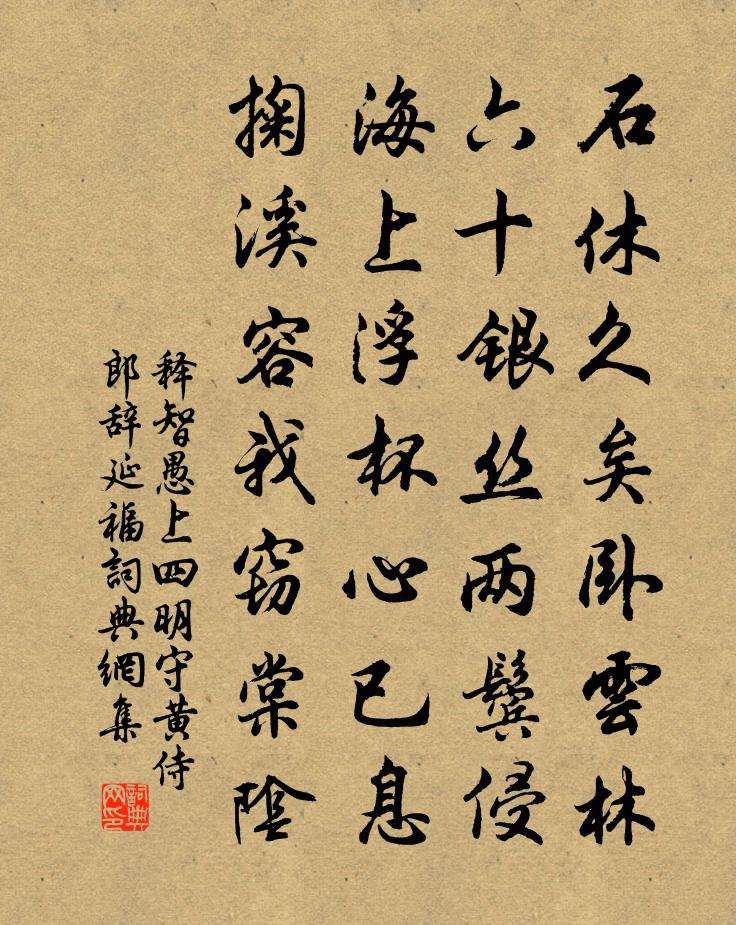 石休久矣卧雲林
六十銀丝两鬓侵
海上浮杯心已息
掬溪容我窃棠陰
释智愚上四明守黄侍
郎辞延福詞典網集
詞典
网印